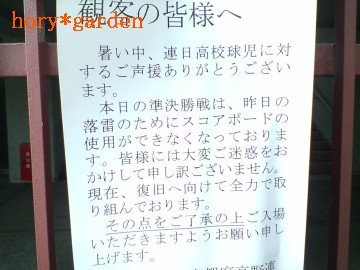 hory*garden
観客の皆様へ
暑い中、連日高校球児に対
するご声援ありがとうござい
ます。
本日の準決勝戦は、昨日の
落雷のためにスコアボードの
使用ができなくなっておりま
す。皆様には大変ご迷惑をお
かけして申し訳ございません。
現在、復旧へ向けて全力で取
り組んでおります。
その点をご了承の上ご入場
いただきますようお願い申し
上げます。